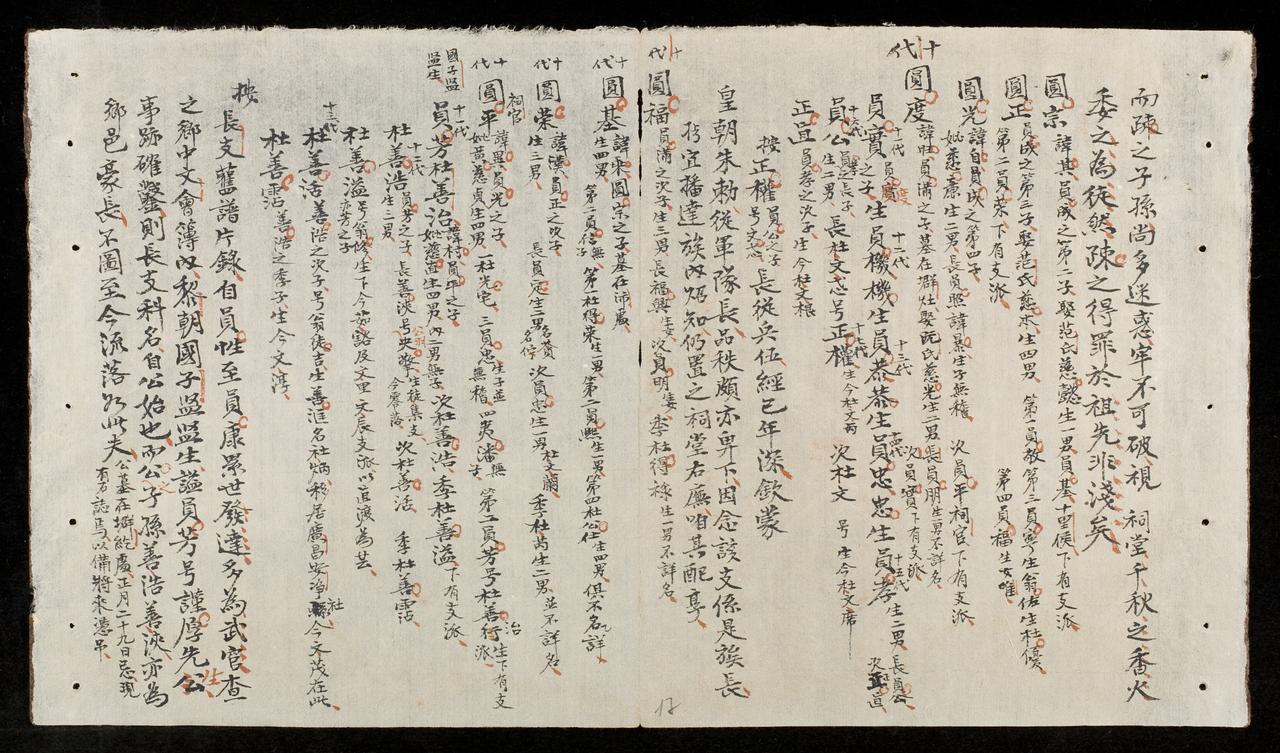 而疎之子孫尚多迷惑牢不可破視 祠堂千秋之香火
委之為徒然疎之得罪於祖先非淺矣
圓宗 諱其員成之第二子娶范氏慈懿生一男員基十里侯下有支派
圓正 員成之第三子娶范氏慈 生四男 第一員赦 第三員寧生翁佐生杜優
第二員荣下有支派 第四員福生女唯
圓光 諱自員成之第四子
妣慈康生二男長員照諱暴生子無稽 次員平祠官下有支派
十代
圓度 諱 員滿之子墓在群灶娶阮氏慈光生二男長員朋生男不詳名
次員實下有支派
十一代 員廣 十二代 十三代 十四代 十五代
員實之子生員機機生員恭恭生員忠忠生員孝生二男長員公
次正直
十六代 員公 員孝之長子 生二男 長杜文 号正權 十七代 生今杜文 次杜文 号 生今杜文席
正直 員孝之次子生今杜文根
按正權 員公之子 号文 長從兵伍經已年深欽蒙
皇朝朱勅從軍隊長品秩頗亦卑下因念該支係是族長
特宜播達族內炤知仍置之祠堂右廡咱其配享
十代
圓福 員滿之次子生三男長福興生女次員明 季杜得祿生一男不詳名
十代
圓基 諱 圓宗之子墓在沛處
生四男 第二員信無子 第杜得荣生一男第二員熙生一男第四杜公任生四男俱不名詳
十代
圓荣 諱漢員正之次子
生三男 長員定生二男名貢名倅 次員忠生一男杜文蘭 季杜芮生二男並不詳名
十代 祠官
圓平 諱異員光之子
妣黄慈貞生四男一杜光宅 三員忠生子並無稽 四夷潘無嗣 第二員芳号杜善行治生下有支派
國子監監生
十一代
員芳杜善治 諱材員平之子 妣慈直生四男內二男無子 次杜善浩季杜善溢下有支派
十二代
杜善浩 員芳之子 生三男 長善浹号央 生 集支今零落 次杜善活 季杜善霑
杜善溢 号翁條生下今茹谿及文里文辰支派以追渡為芸
員芳之子
十三代
杜善活 善浩之次子号翁徒吉生善滙名社炳移居廣昌安淨社今文茂在此
杜善霑 善浩之季子生今文淳
按長支舊譜片錄自員性至員康累世發達多為武官查
之鄉中文會簿內黎朝國子監監生謚員芳号謹厚先生公
事跡確鑿則長支科名自公始也而公之子孫善浩善浹亦為
鄉邑豪長不圖至今流落如此夫 公墓在塀 處正月二十九日忌現有方誌焉以備將來憑弔
17